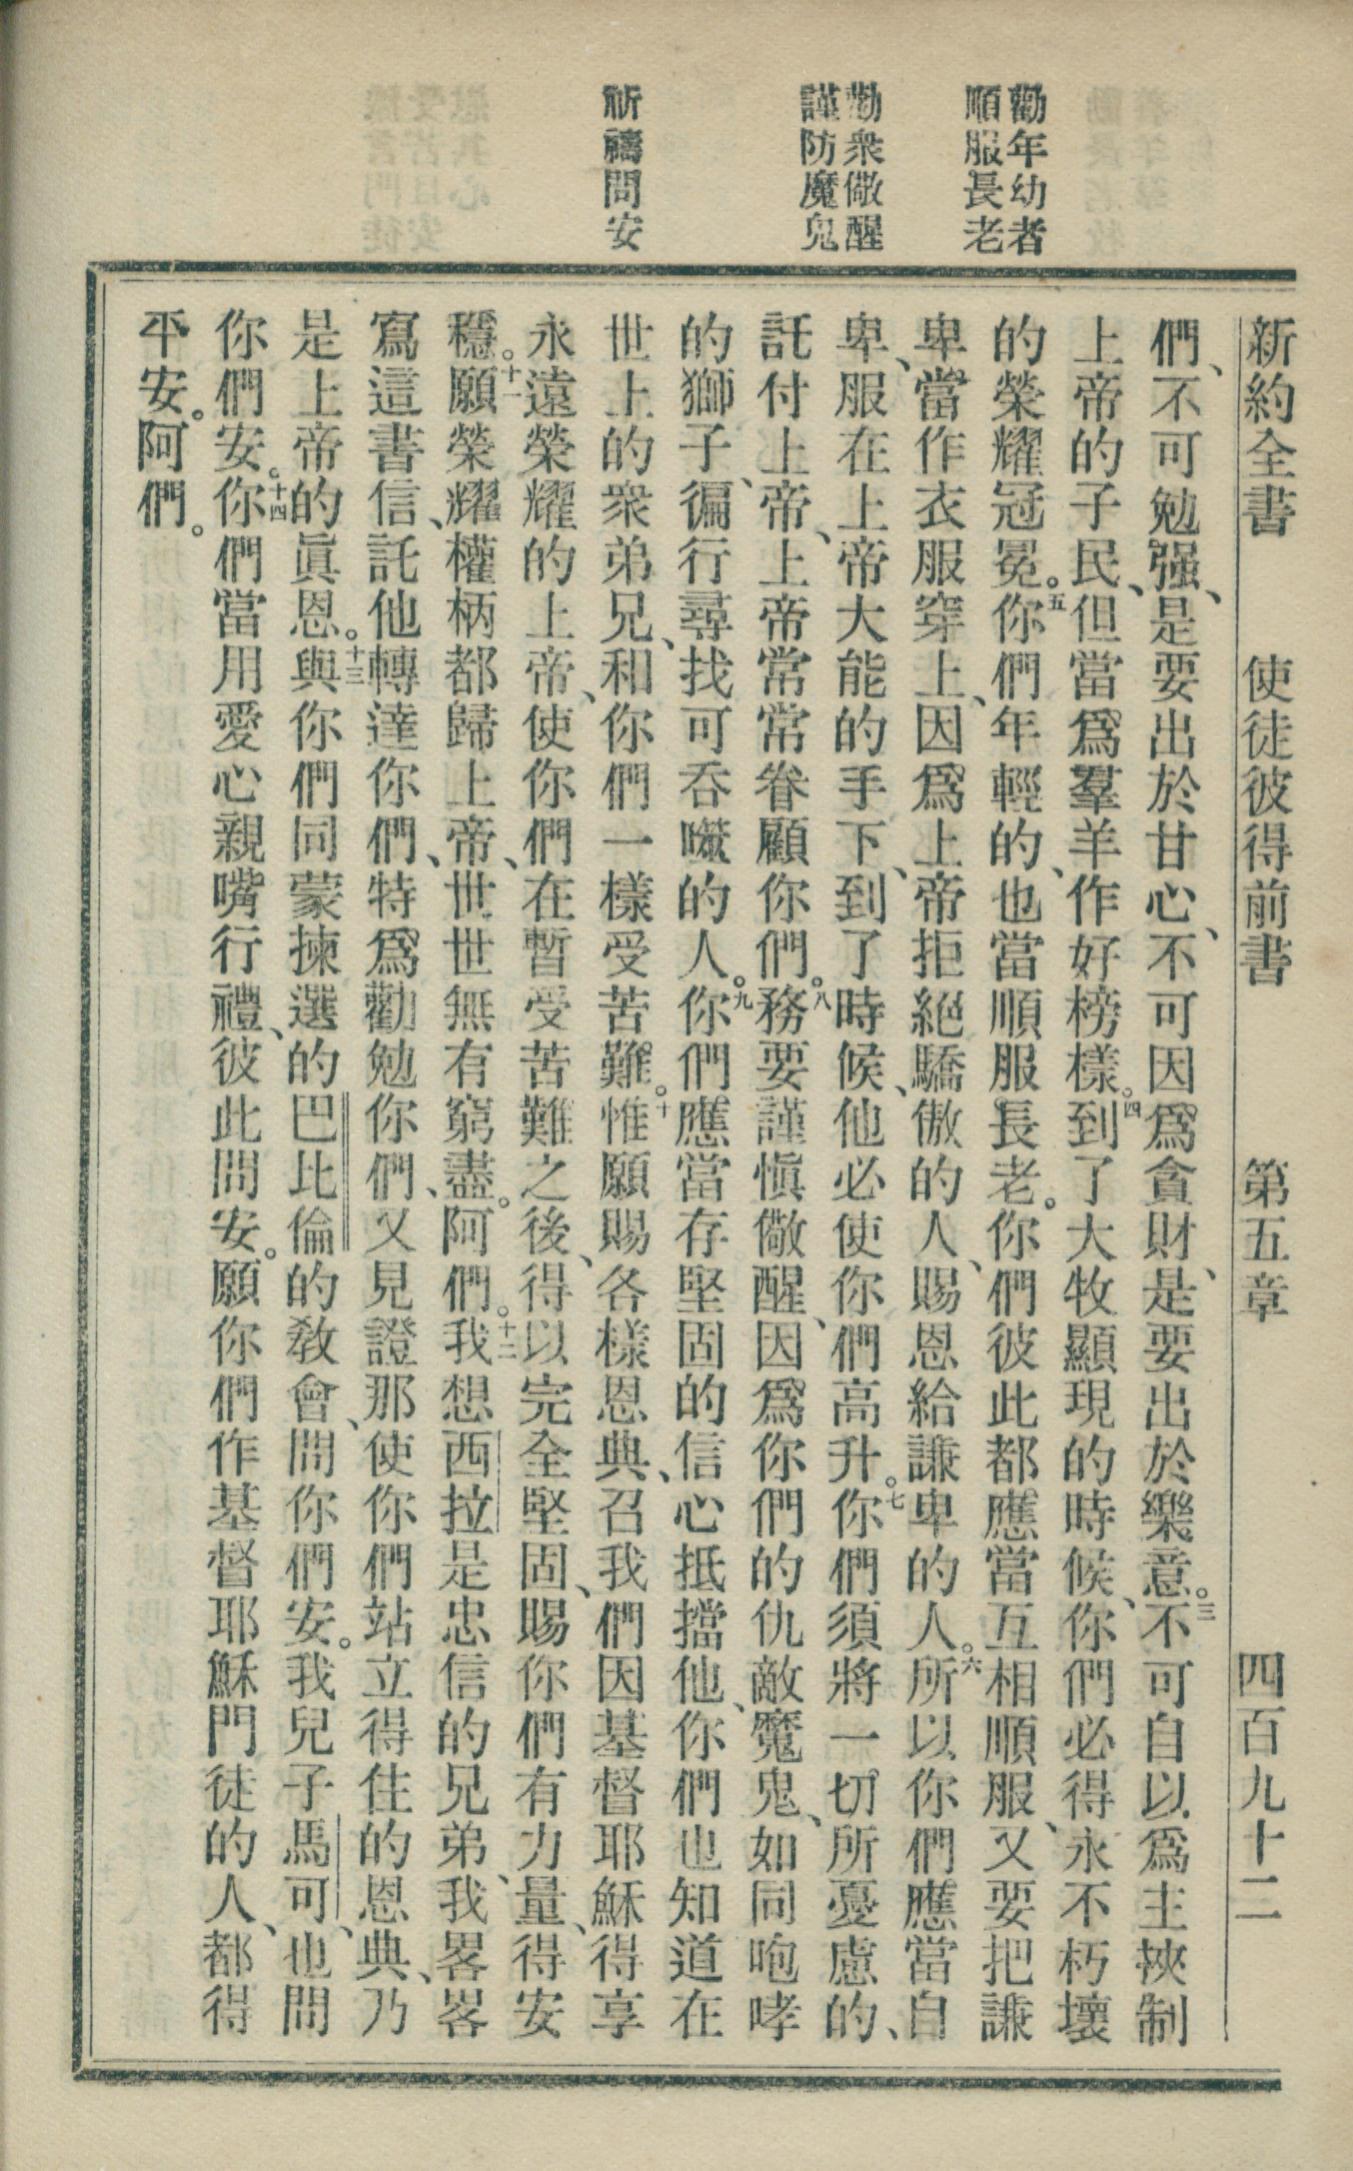 勸年幼者
順服長老
勸衆儆醒
謹防魔鬼
祈禱問安
新約全書 使徒彼得前書 第五章 四百九十二
們、不可勉强、是要出於甘心、不可因爲貪財、是要出於樂意。三不可自以爲主挾制
上帝的子民、但當爲羣羊作好榜樣。四到了大牧顯現的時候、你們必得永不朽壞
的榮耀冠冕。五你們年輕的、也當順服長老。你們彼此都應當互相順服、又要把謙
卑當作衣服穿上、因爲上帝拒絕驕傲的人、賜恩給謙卑的人。六所以你們應當自
卑、服在上帝大能的手下、到了時候、他必使你們高升。七你們須將一切所憂慮的、
託付上帝、上帝常常眷顧你們。八務要謹愼儆醒、因爲你們的仇敵魔鬼、如同咆哮
的獅子、徧行尋找可吞噬的人。九你們應當存堅固的信心抵擋他、你們也知道在
世上的衆弟兄、和你們一樣受苦難。十惟願賜各樣恩典、召我們因基督耶穌得享
永遠榮耀的上帝、使你們在暫受苦難之後、得以完全堅固、賜你們有力量、得安
穩。十一願榮耀權柄都歸上帝、世世無有窮盡。阿們。十二我想西拉是忠信的兄弟、我畧畧
寫這書信、託他轉達你們、特爲勸勉你們、又見證那使你們站立得住的恩典、乃
是上帝的眞恩。十三與你們同蒙揀選的巴比倫的敎會、問你們安。我兒子馬可、也問
你們安。十四你們當用愛心親嘴行禮、彼此問安。願你們作基督耶穌門徒的人、都得
平安。阿們。